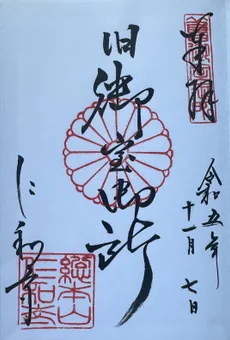 奉拝
旧御室御所
令和五年
十一月七日
仁和寺
総本山
仁和寺